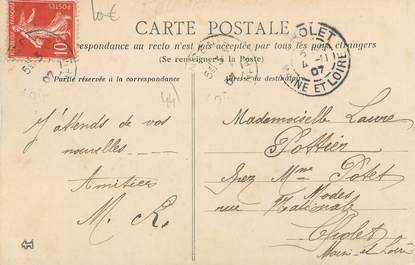 10€
CARTE POSTALE
La Correspondance au recto n'est pas acceptée par tous les pays étrangers
(Se renseigner à la Poste)
Partie réservée à la correspondance
Adresse du destinataire
POSTES
10
CHOLET
MAINE ET LOIRE
44
J'attends de vos
nouvelles
Amitiés
M. R.
Mademoiselle Laure
Pottier
Chez Mme Potet
Modes
rue Nationale
Cholet
Maine-et-Loire